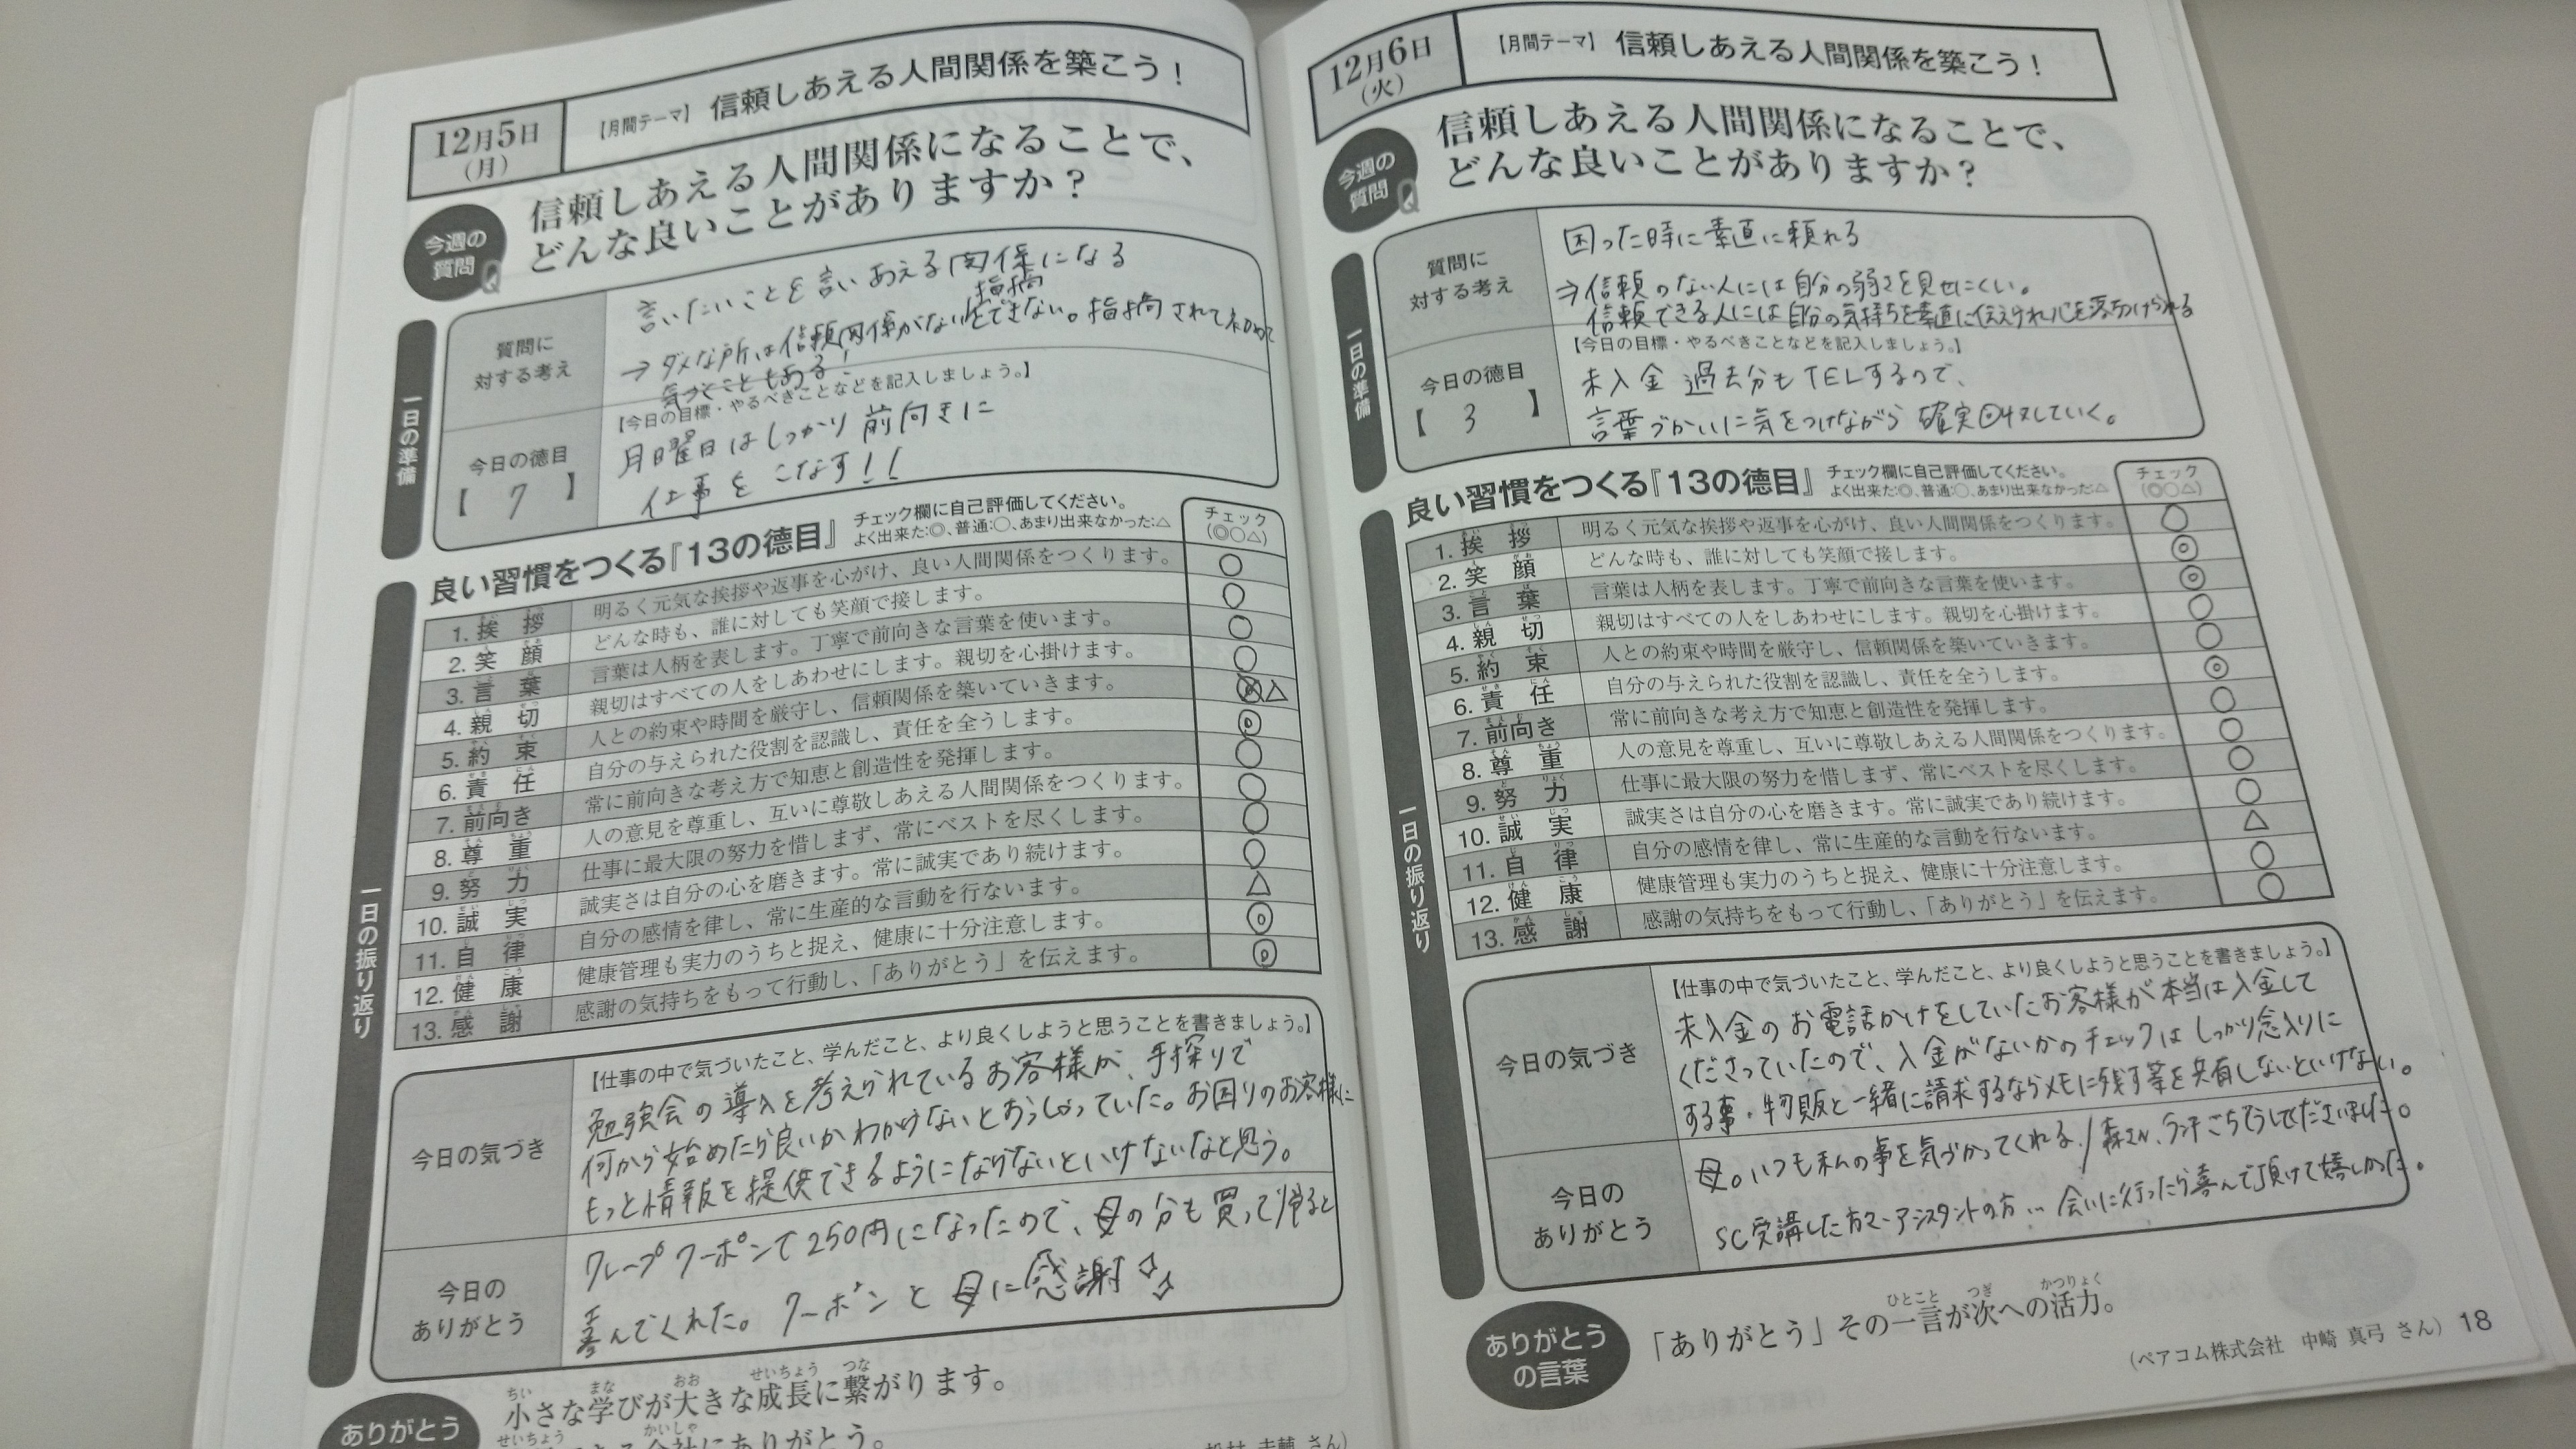 12月5日
(月)
【月間テーマ】 信頼しあえる人間関係を築こう！
今週の
質問 Q
信頼しあえる人間関係になることで、
どんな良いことがありますか？
一日の準備
質問に
対する考え
言いたいことを言いあえる関係になる
→ダメな所は信頼関係がないと指摘できない。指摘されて初めて
気づくこともある！
今日の徳目
【 7 】
【今日の目標・やるべきことなどを記入しましょう。】
月曜日はしっかり前向きに
仕事をこなす!!
良い習慣をつくる『13の徳目』
チェック欄に自己評価してください。
よく出来た:◎、普通:○、あまり出来なかった:△
チェック
(◎○△)
一日の振り返り
1. 挨拶 明るく元気な挨拶や返事を心がけ、良い人間関係をつくります。 ○
2. 笑顔 どんな時も、誰に対しても笑顔で接します。 ○
3. 言葉 言葉は人柄を表します。丁寧で前向きな言葉を使います。 ○
4. 親切 親切はすべての人をしあわせにします。親切を心掛けます。 ○
5. 約束 人との約束や時間を厳守し、信頼関係を築いていきます。 △
6. 責任 自分の与えられた役割を認識し、責任を全うします。 ◎
7. 前向き 常に前向きな考え方で知恵と創造性を発揮します。 ○
8. 尊重 人の意見を尊重し、互いに尊敬しあえる人間関係をつくります。 ○
9. 努力 仕事に最大限の努力を惜しまず、常にベストを尽くします。 ○
10. 誠実 誠実さは自分の心を磨きます。常に誠実であり続けます。 ○
11. 自律 自分の感情を律し、常に生産的な言動を行ないます。 △
12. 健康 健康管理も実力のうちと捉え、健康に十分注意します。 ◎
13. 感謝 感謝の気持ちをもって行動し、「ありがとう」を伝えます。 ◎
今日の気づき
【仕事の中で気づいたこと、学んだこと、より良くしようと思うことを書きましょう。】
勉強会の導入を考えられているお客様が、手探りで
何から始めたら良いかわからないとおっしゃっていた。お困りのお客様に
もっと情報を提供できるようにならないといけないなと思う。
今日の
ありがとう
クレープクーポンで250円になったので、母の分も買って帰ると
喜んでくれた。クーポンと母に感謝☆☆
ありがとう
小さな学びが大きな成長に繋がります。
12月6日
(火)
【月間テーマ】 信頼しあえる人間関係を築こう！
今週の
質問 Q
信頼しあえる人間関係になることで、
どんな良いことがありますか？
一日の準備
質問に
対する考え
困った時に素直に頼れる
⇒信頼のない人には自分の弱さを見せにくい。
信頼できる人には自分の気持ちを素直に伝えられ心を落ちつけられる
今日の徳目
【 3 】
【今日の目標・やるべきことなどを記入しましょう。】
未入金 過去分もTELするので、
言葉づかいに気をつけながら確実回収していく。
良い習慣をつくる『13の徳目』
チェック欄に自己評価してください。
よく出来た:◎、普通:○、あまり出来なかった:△
チェック
(◎○△)
一日の振り返り
1. 挨拶 明るく元気な挨拶や返事を心がけ、良い人間関係をつくります。 ○
2. 笑顔 どんな時も、誰に対しても笑顔で接します。 ◎
3. 言葉 言葉は人柄を表します。丁寧で前向きな言葉を使います。 ◎
4. 親切 親切はすべての人をしあわせにします。親切を心掛けます。 ○
5. 約束 人との約束や時間を厳守し、信頼関係を築いていきます。 ○
6. 責任 自分の与えられた役割を認識し、責任を全うします。 ◎
7. 前向き 常に前向きな考え方で知恵と創造性を発揮します。 ○
8. 尊重 人の意見を尊重し、互いに尊敬しあえる人間関係をつくります。 ○
9. 努力 仕事に最大限の努力を惜しまず、常にベストを尽くします。 ○
10. 誠実 誠実さは自分の心を磨きます。常に誠実であり続けます。 ○
11. 自律 自分の感情を律し、常に生産的な言動を行ないます。 △
12. 健康 健康管理も実力のうちと捉え、健康に十分注意します。 ○
13. 感謝 感謝の気持ちをもって行動し、「ありがとう」を伝えます。 ○
今日の気づき
【仕事の中で気づいたこと、学んだこと、より良くしようと思うことを書きましょう。】
未入金のお電話かけをしていたお客様が本当は入金して
くださっていたので、入金がないかのチェックはしっかり念入りに
する事・物販と一緒に請求するならメモに残す等を共有しないといけない。
今日の
ありがとう
母。いつも私の事を気づかってくれる。/森さん、ランチごちそうしてくださいました。
SC受講した方々・アシスタントの方… 会いに行ったら喜んで頂けて嬉しかった。
ありがとう
の言葉
「ありがとう」その一言が次への活力。
(ペアコム株式会社 中崎 真弓 さん) 18